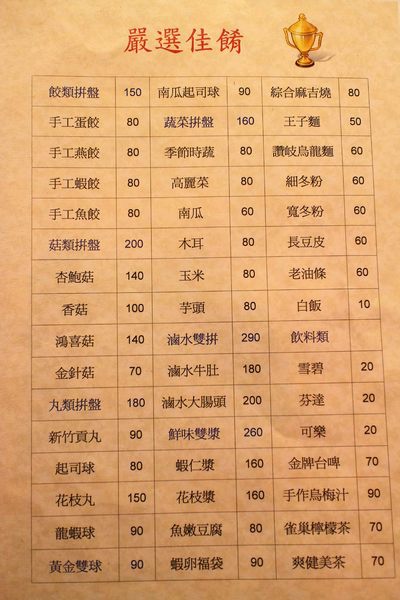 嚴選佳餚
餃類拼盤 150 南瓜起司球 90 綜合麻吉燒 80
手工蛋餃 80 蔬菜拼盤 160 王子麵 50
手工燕餃 80 季節時蔬 80 讚岐烏龍麵 60
手工蝦餃 80 高麗菜 80 細冬粉 60
手工魚餃 80 南瓜 60 寬冬粉 60
菇類拼盤 200 木耳 80 長豆皮 60
杏鮑菇 140 玉米 80 老油條 60
香菇 100 芋頭 80 白飯 10
鴻喜菇 140 滷水雙拼 290 飲料類
金針菇 70 滷水牛肚 180 雪碧 20
丸類拼盤 180 滷水大腸頭 200 芬達 20
新竹貢丸 90 鮮味雙漿 260 可樂 20
起司球 80 蝦仁漿 160 金牌台啤 70
花枝丸 150 花枝漿 160 手作烏梅汁 90
龍蝦球 90 魚嫩豆腐 80 雀巢檸檬茶 70
黃金雙球 90 蝦卵福袋 90 爽健美茶 70